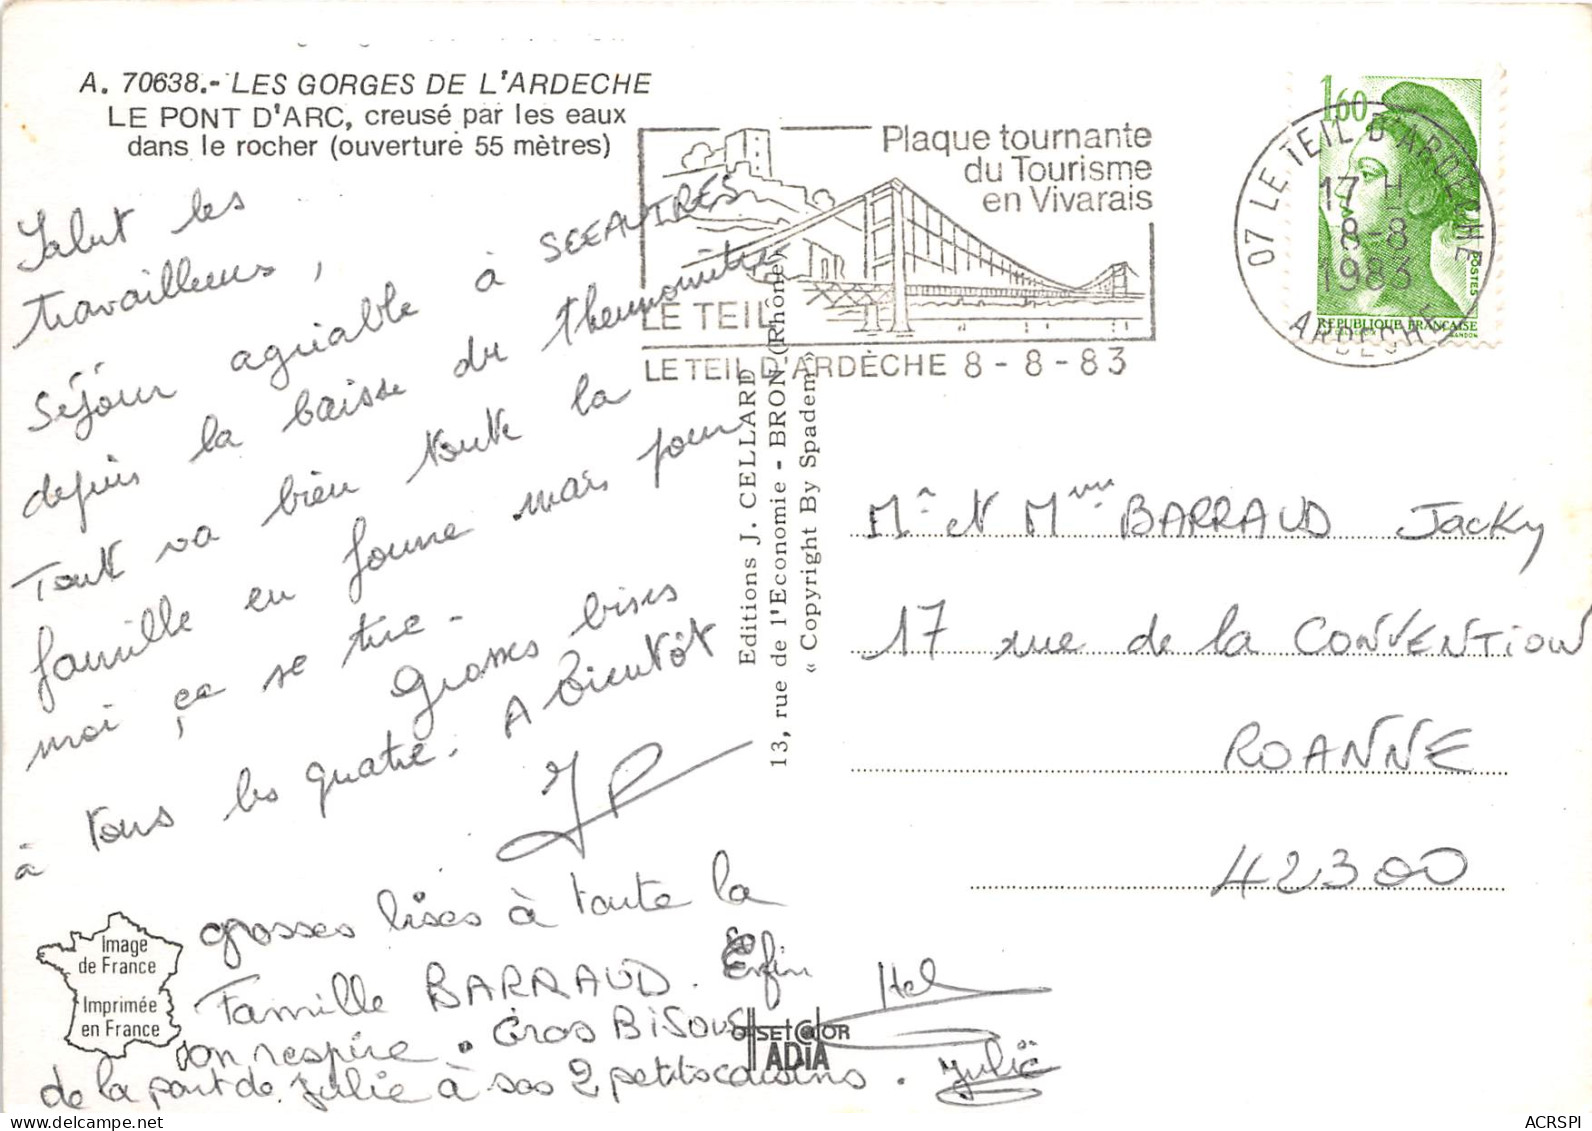 A. 70638.- LES GORGES DE L'ARDECHE
LE PONT D'ARC, creusé par les eaux
dans le rocher (ouverture 55 mètres)
Salut les
travailleurs,
Séjour agréable à SCEAUTRES
depuis la baisse du thermomètre
Tout va bien toute la
famille en forme mais pour
moi ça se tire.
Grosses bises
à tous les quatre. A bientôt
JP
grosses bises à toute la
Famille BARRAUD. Enfin
on respire. Gros BISOUS
de la part de Julie à ses 2 petits cousins.
Julie
Image
de France
Imprimée
en France
Plaque tournante
du Tourisme
en Vivarais
LE TEIL
LE TEIL D'ARDÈCHE 8 - 8 - 83
Editions J. CELLARD
13, rue de l'Economie - BRON (Rhône)
« Copyright By Spadem »
OffsetColOR
ADiA
1,60
POSTES
REPUBLIQUE FRANÇAISE
07 LE TEIL D'ARDECHE
17 H
8-8
1983
ARDECHE
Mr et Mme BARRAUD Jacky
17 rue de la CONVENTION
ROANNE
42300
ACRSPI